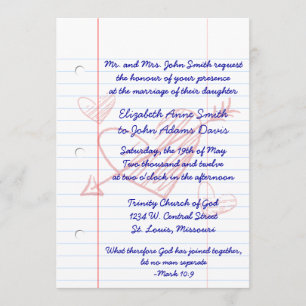 Mr. and Mrs. John Smith request
the honour of your presence
at the marriage of their daughter
Elizabeth Anne Smith
to John Adams Davis
Saturday, the 19th of May
Two thousand and twelve
at two o'clock in the afternoon
Trinity Church of God
1234 W. Central Street
St. Louis, Missouri
What therefore God has joined together,
let no man seperate
-Mark 10:9